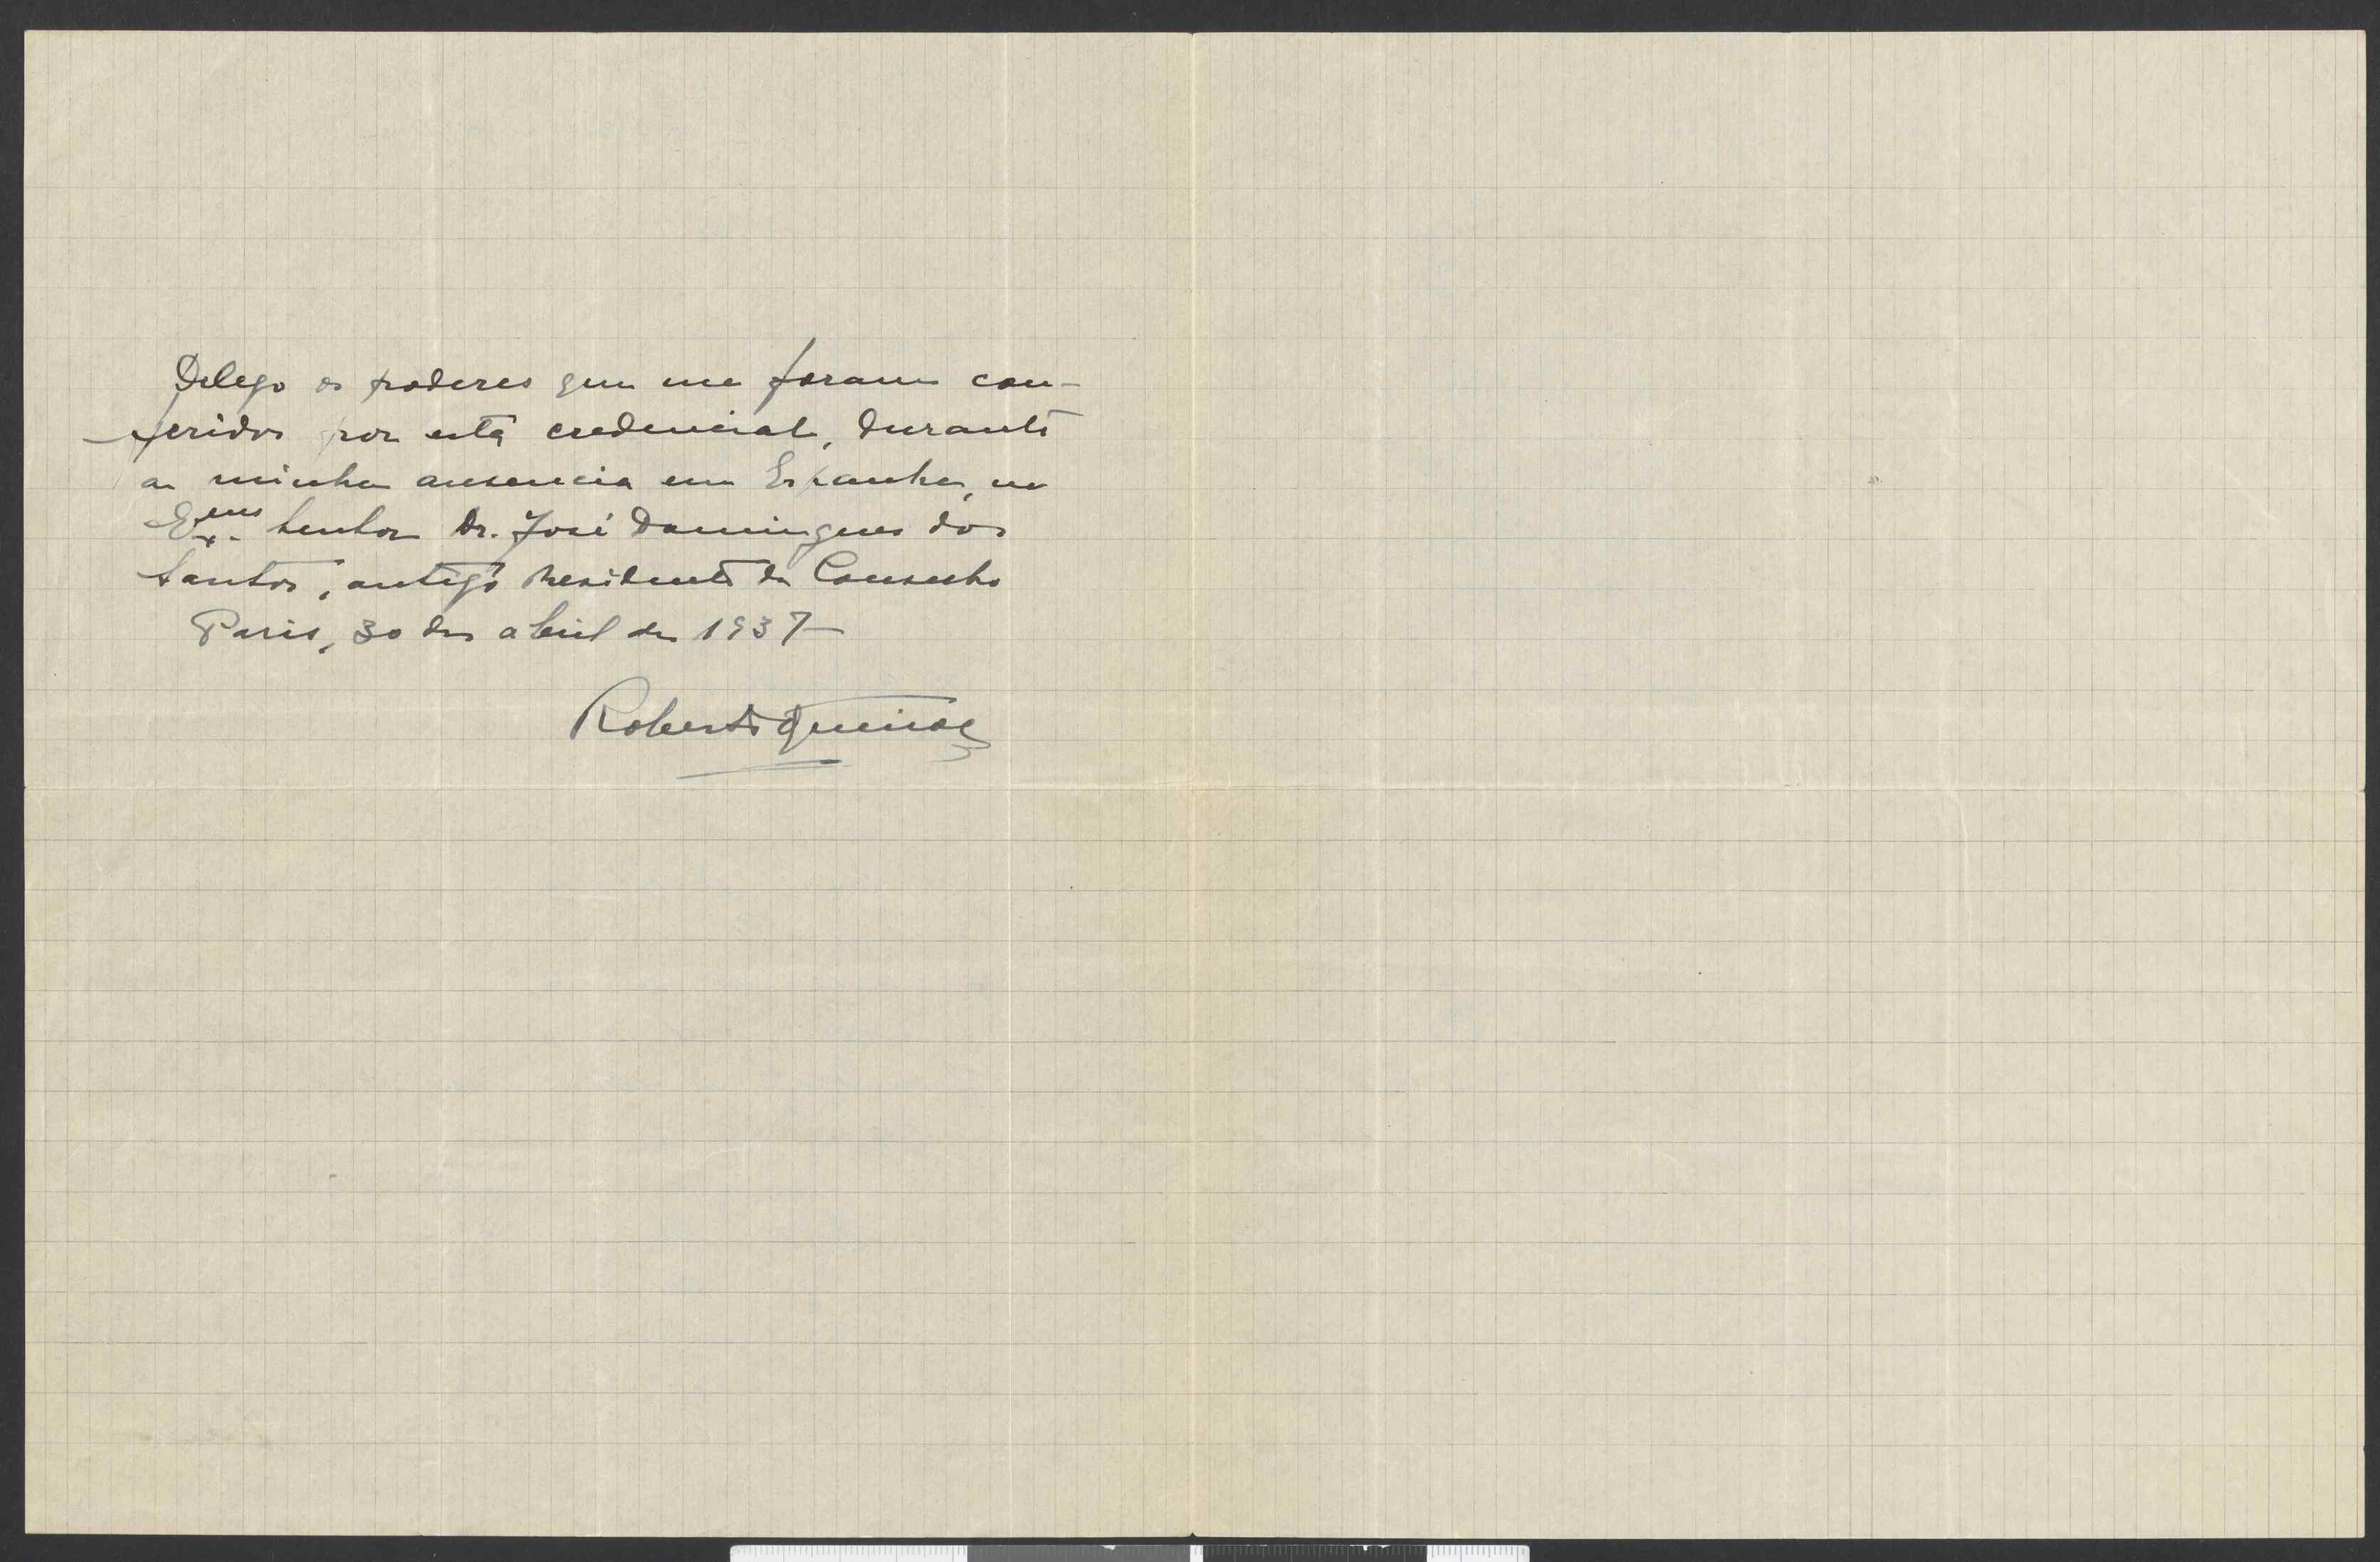 Delego os poderes que me foram con-
feridos por esta credencial, durante
a minha ausencia em Espanha, no
Ex.mo Senhor Dr. José Domingues dos
Santos, antigo Presidente do Conselho
Paris, 30 de abril de 1937
Roberto Queiroz